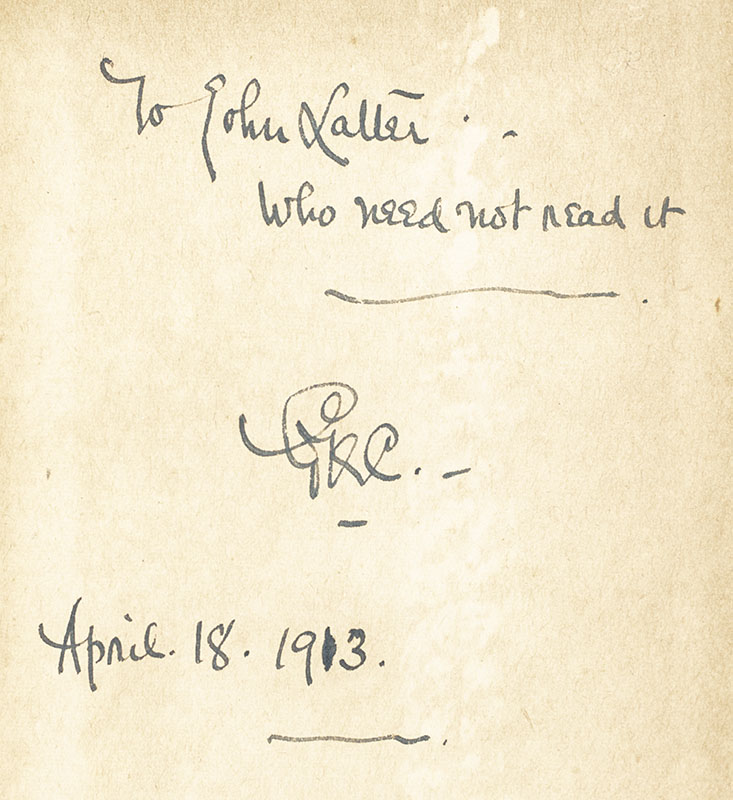 To John Latter. -
Who need not read it
GKC. -
April. 18. 1913.